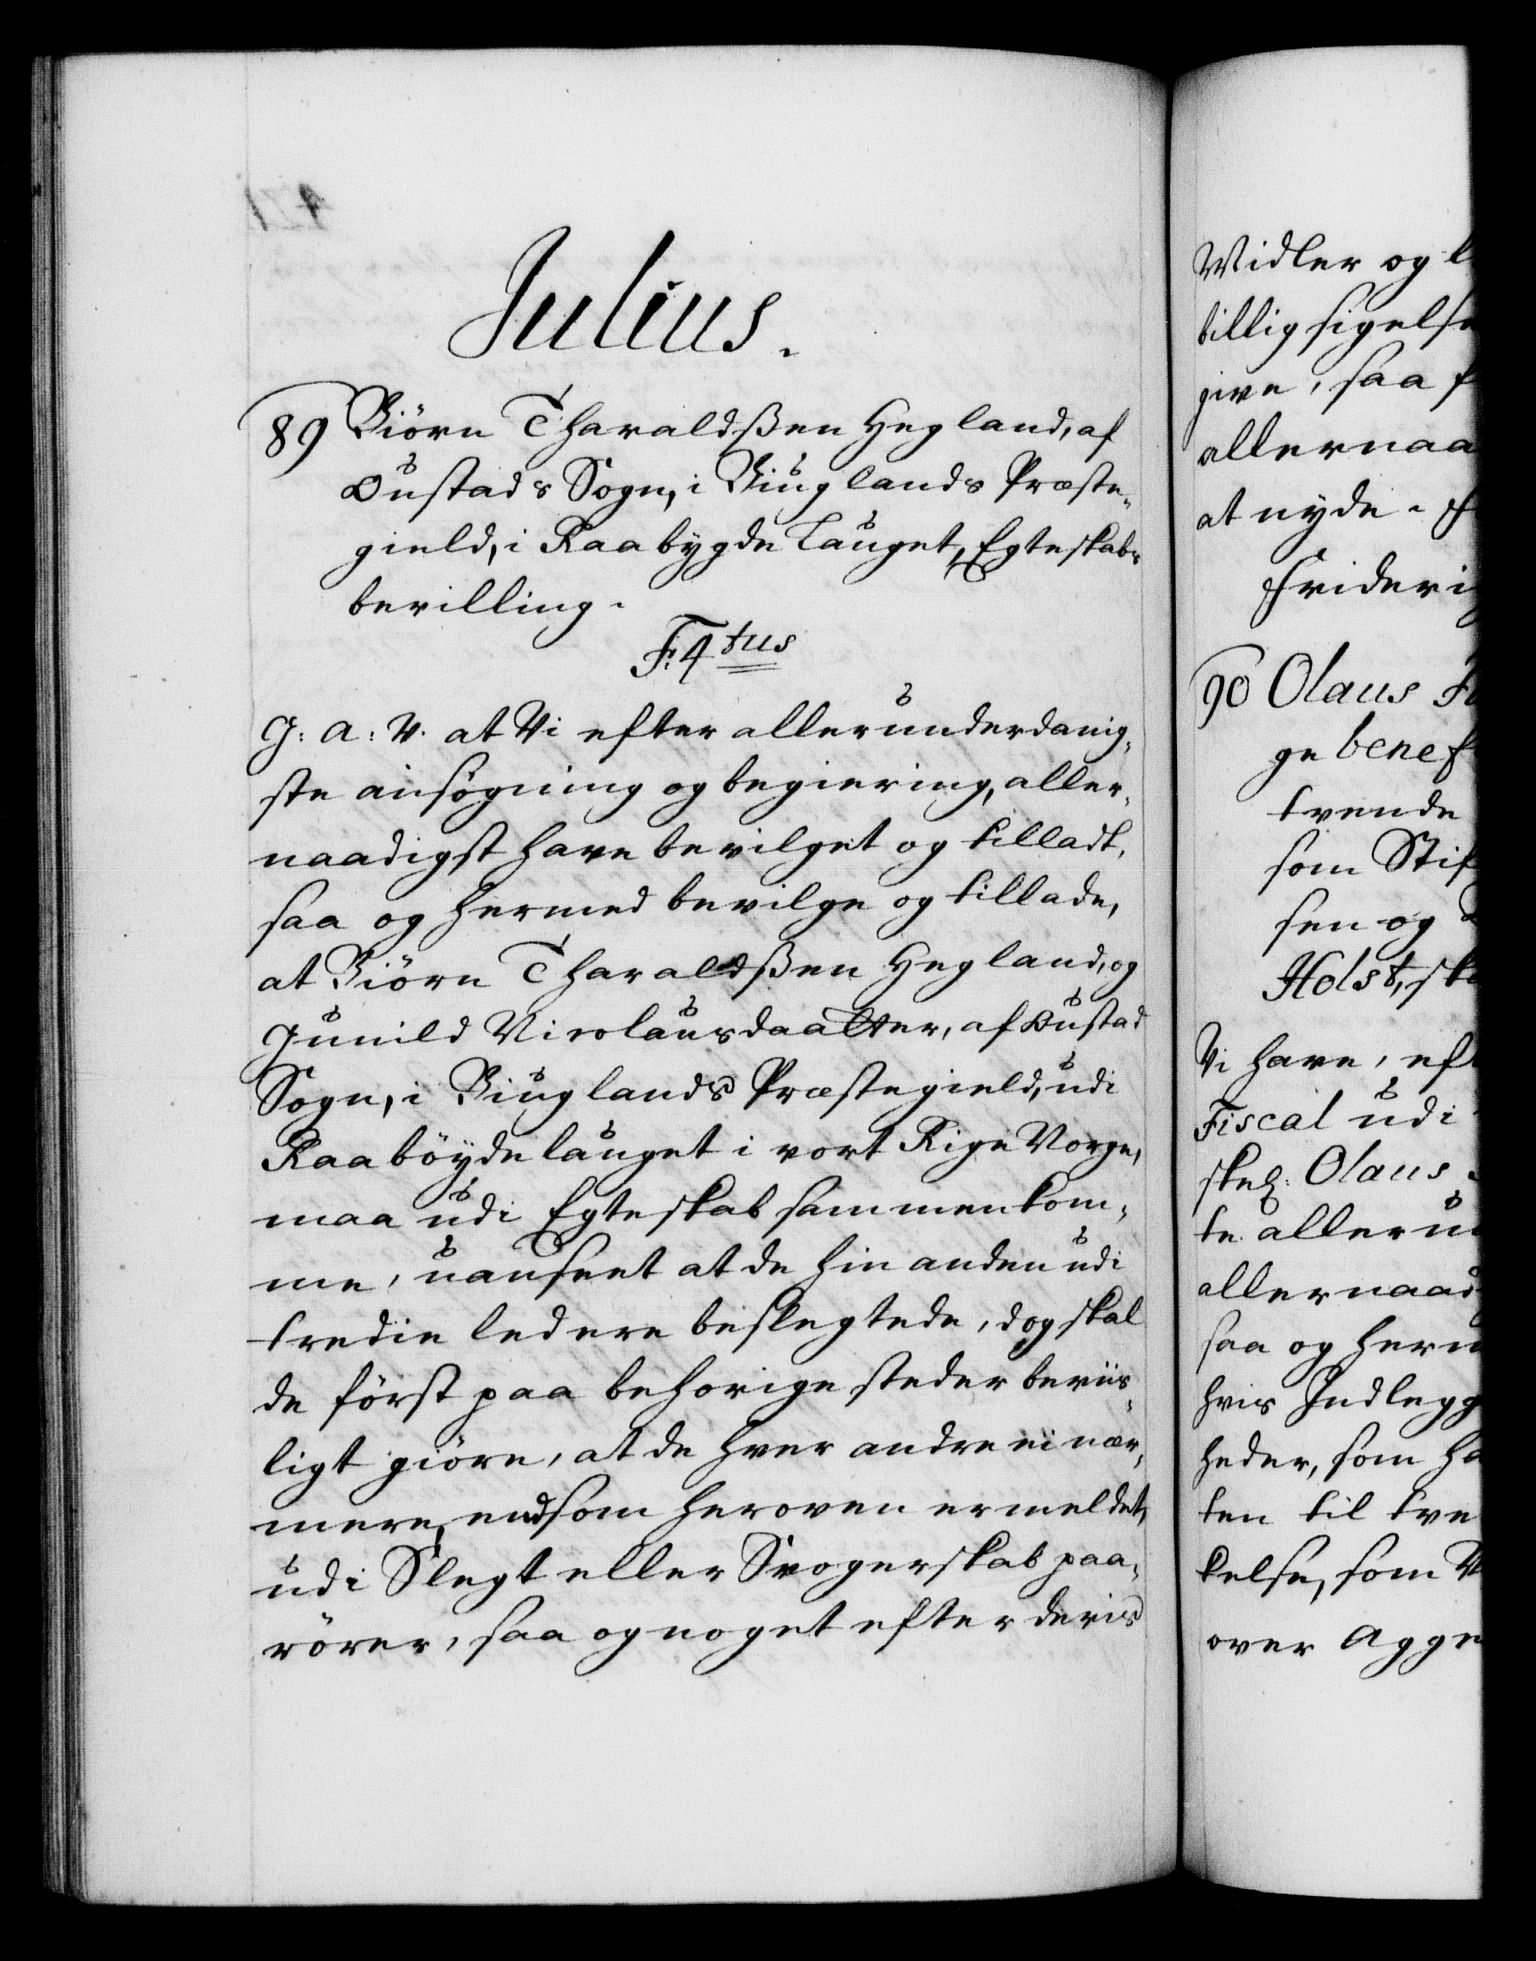 Julius.
89 Biörn Tharaldßen Hegland, af
Oustads Sogn, i Biuglands Præste-
gield, i Raabygde Lauget, Egteskabs
bevilling.
F. 4tus
G: A: V. at Vi efter allerunderdanig-
ste ansøgning og begiering, aller-
naadigst have bevilget og tilladt,
saa og hermed bevilge og tillade,
at Biörn Tharaldßen Hegland, og
Gunild Nicolausdaatter, af Oustad
Sogn, i Biuglands Præstegield, udi
Raabøydelauget i vort Rige Norge,
maa udi Egteskab sammenkom-
me, uanseet at de hinanden udi
tredie led ere beslegtede, dog skal
de först paa behorige steder beviis-
ligt giöre, at de hver andre ei nær-
mere, end som heroven ermeldet,
udi Slegt eller Svogerskab paa-
rörer, saa og noget efter deris
Midler og l
billigsigelse
give, saa f
allernaa
at nyde.
Frideri
90 Olaus
ge benef
trende
som Stif
sen og
Holst, sk
Vi have, eft
Fiscal udi
skel: Olaus
te alleru
allernaad
saa og herm
hvis Indlegg
heder, som ha
ten til tre
kelse, som V
over Agge